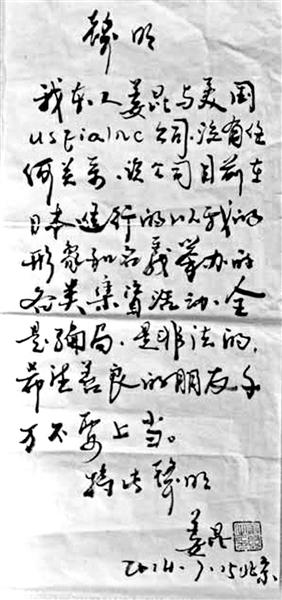 聲明
我本人姜昆与美国
usfia Inc公司没有任
何关系,该公司目前在
日本进行的以我的
形象和名义举办的
各类集资活动,全
是骗局,是非法的,
希望善良的朋友千
万不要上当。
特此聲明
姜昆
2014.7.15北京